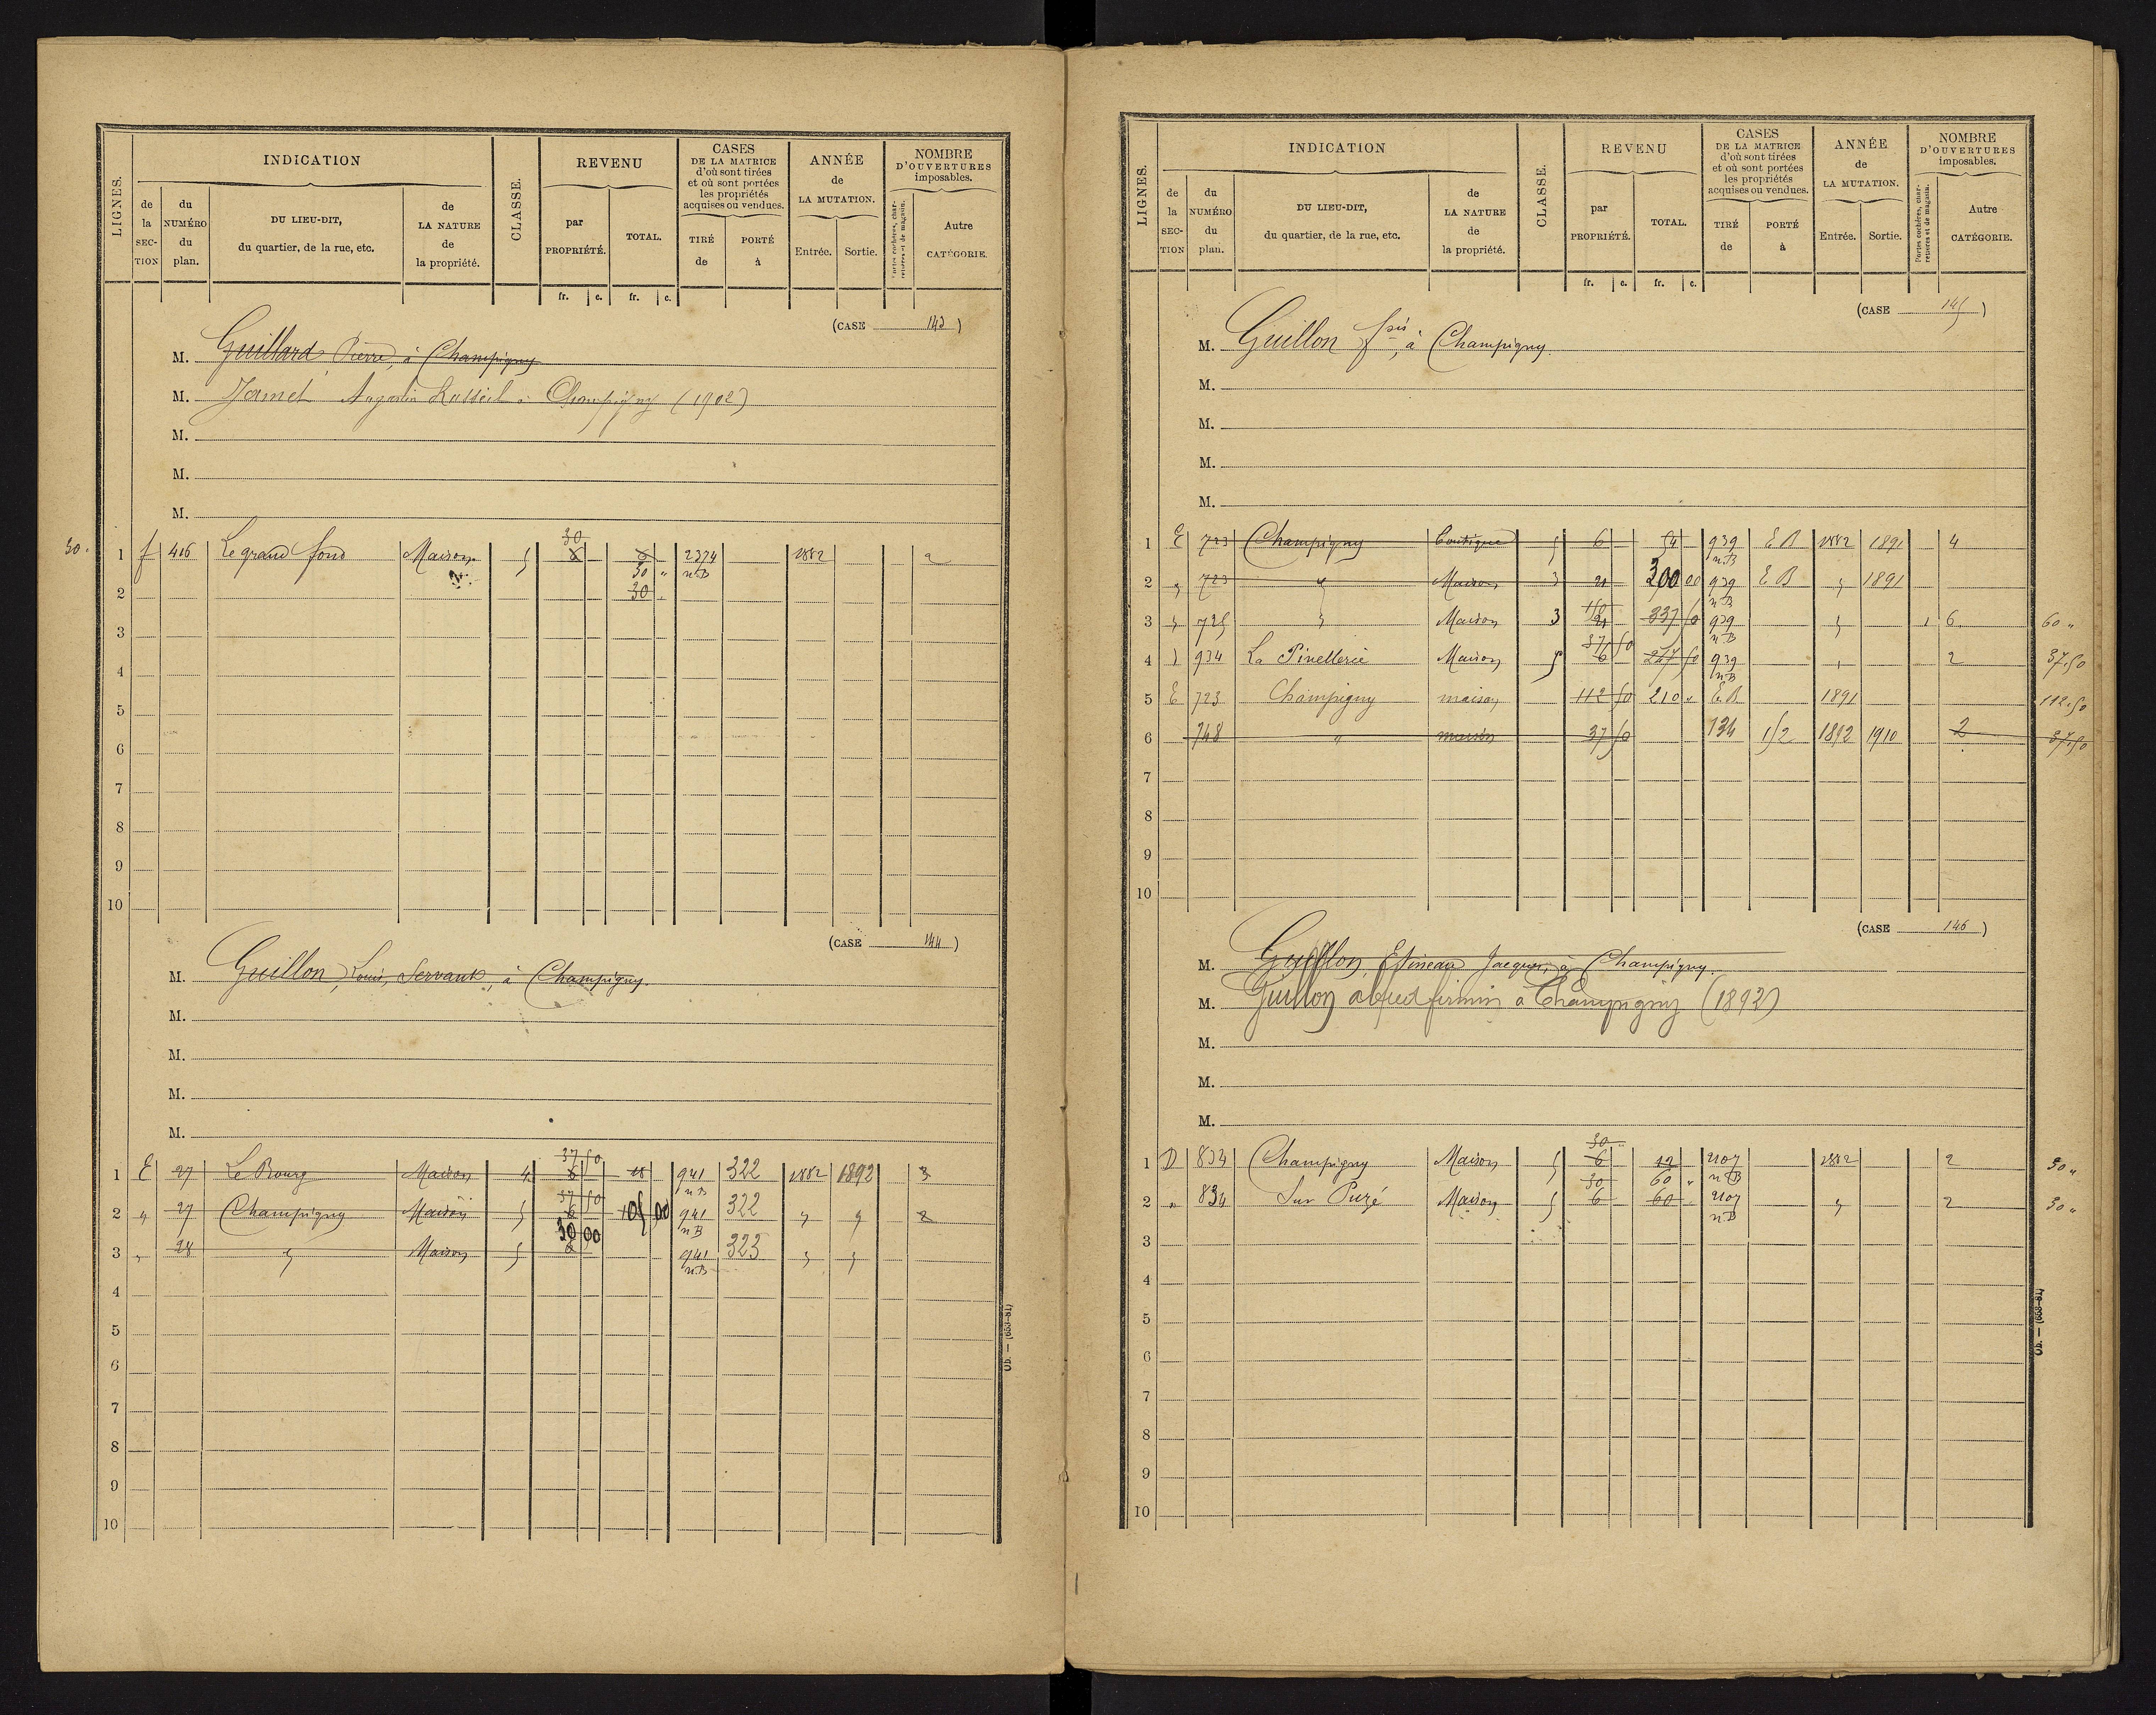 LIGNES.
INDICATION
de la SEC-TION
du NUMÉRO du plan.
DU LIEU-DIT, du quartier, de la rue, etc.
de LA NATURE de la propriété.
CLASSE.
REVENU
par PROPRIÉTÉ.
TOTAL.
fr. c. fr. c.
CASES DE LA MATRICE d'où sont tirées et où sont portées les propriétés acquises ou vendues.
TIRÉ de
PORTÉ à
ANNÉE de LA MUTATION.
Entrée. Sortie.
NOMBRE D'OUVERTURES imposables.
Portes cochères, charretières et de magasin.
Autre CATÉGORIE.
(CASE 143)
M. Guillard, Pierre, à Champigny
M. Jamet Augustin à Champigny (1902)
M.
M.
M.
30. 1 f 416 Le grand fond Maison 5 30 6 6 2374 1882 2
30 " n.B
2 30
3
4
5
6
7
8
9
10
(CASE 144)
M. Guillon, Louis, Servant, à Champigny.
M.
M.
M.
M.
37 50
1 E 27 Le Bourg Maison 4 6 18 941 322 1882 1892 3
n.B
37 50
2 " 27 Champigny Maison 5 6 105 00 941 322 " " 2
30 00 n.B
3 " 28 " Maison 5 6 941 323 " "
n.B
4
5
6
7
8
9
10
Ub. — (653-81)
LIGNES.
INDICATION
de la SEC-TION
du NUMÉRO du plan.
DU LIEU-DIT, du quartier, de la rue, etc.
de LA NATURE de la propriété.
CLASSE.
REVENU
par PROPRIÉTÉ.
TOTAL.
fr. c. fr. c.
CASES DE LA MATRICE d'où sont tirées et où sont portées les propriétés acquises ou vendues.
TIRÉ de
PORTÉ à
ANNÉE de LA MUTATION.
Entrée. Sortie.
NOMBRE D'OUVERTURES imposables.
Portes cochères, charretières et de magasin.
Autre CATÉGORIE.
(CASE 145)
M. Guillon fois, à Champigny.
M.
M.
M.
M.
1 E 723 Champigny Boutique 5 6 54 939 E B 1882 1891 4
n.B
2 " 723 " Maison 3 21 300 00 939 E B " 1891
n.B
150
3 " 725 " Maison 3 21 337 50 939 " 1 6 60 "
37 50 n.B
4 D 934 La Pinellerie Maison 5 6 247 50 939 " 2 37.50
n.B
5 E 723 Champigny maison 112 50 210 " E.B 1891 112.50
6 748 " maison 37 50 134 152 1892 1910 2 37.50
7
8
9
10
(CASE 146)
M. Guillon, Jacques, à Champigny.
M. Guillon alfred firmin à Champigny (1892)
M.
M.
M.
30
1 D 834 Champigny Maison 5 6 12 2107 1882 2 30 "
30 60 " n.B
2 " 834 Sur Puzé Maison 5 6 60 " 2107 " 2 30 "
n.B
3
4
5
6
7
8
9
10
Ub. — (653-81)